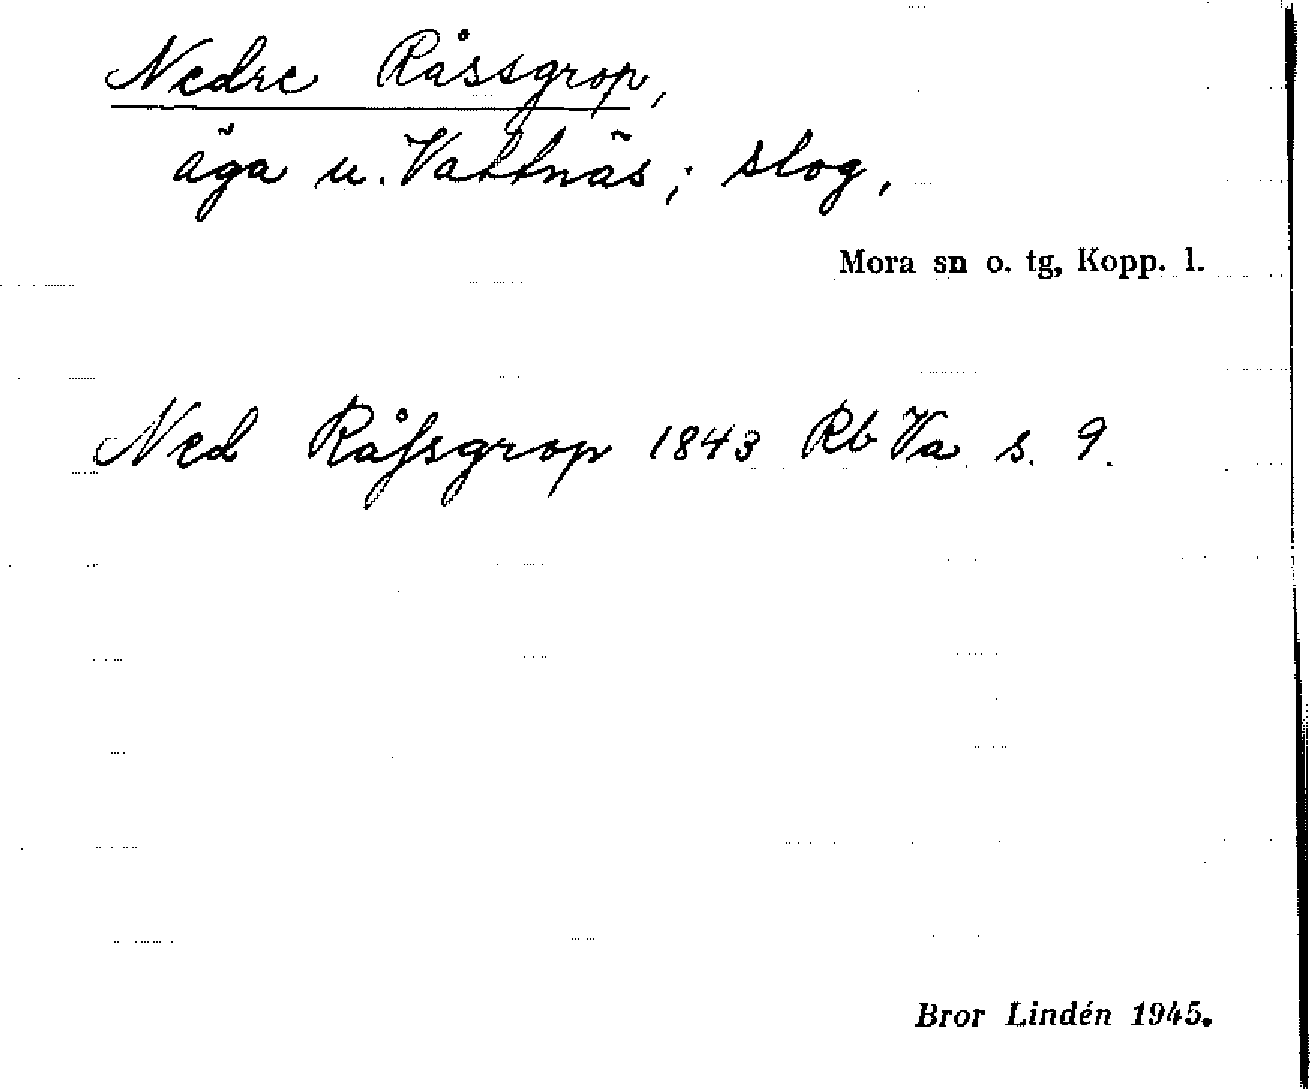 Nedre Råssgrop,
äga u. Vattnäs; slog,
Mora sn o. tg, Kopp. l.
Ned Råfsgrop 1843 Rb Va s. 9.
Bror Lindén 1945.